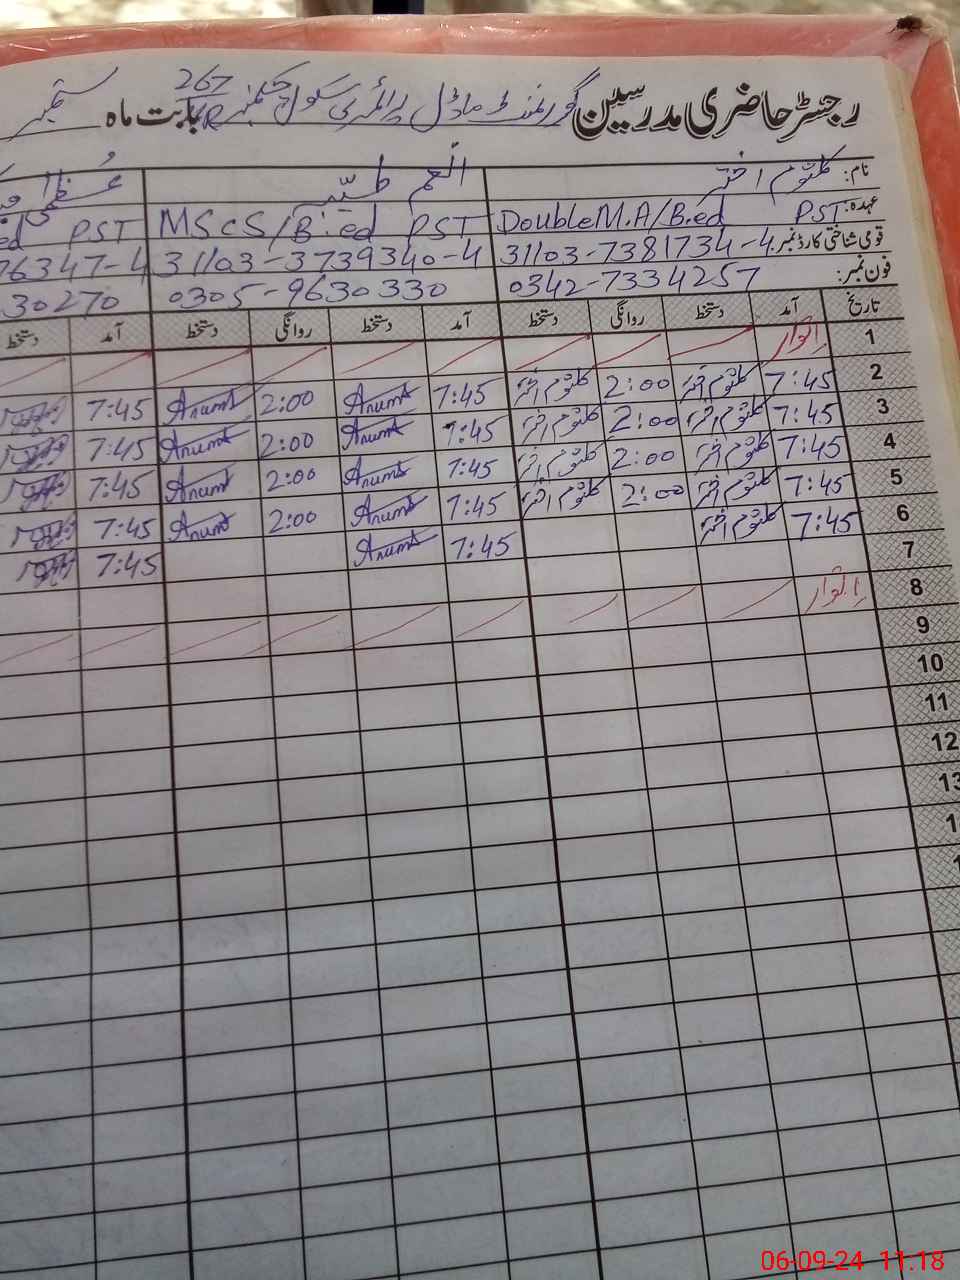 رجسٹر حاضری مدرسین گورنمنٹ ماڈل پرائمری سکول چک نمبر 267/HR بابت ماہ ستمبر
نام: کلثوم اختر انعم طیبہ عُظمیٰ
عہدہ: Double M.A/B.ed PST MScS/B.ed PST ed PST
قومی شناختی کارڈ نمبر: 31103-7381734-4 31103-3739340-4 76347-4
فون نمبر: 0342-7334257 0305-9630330 30270
تاریخ آمد دستخط روانگی دستخط آمد دستخط روانگی دستخط آمد دستخط
1 اتوار
2 7:45 کلثوم اختر 2:00 کلثوم اختر 7:45 Anum 2:00 Anum 7:45
3 7:45 کلثوم اختر 2:00 کلثوم اختر 7:45 Anum 2:00 Anum 7:45
4 7:45 کلثوم اختر 2:00 کلثوم اختر 7:45 Anum 2:00 Anum 7:45
5 7:45 کلثوم اختر 2:00 کلثوم اختر 7:45 Anum 2:00 Anum 7:45
6 7:45 کلثوم اختر 7:45 Anum 7:45
7
8 اتوار
9
10
11
12
13
06-09-24 11.18